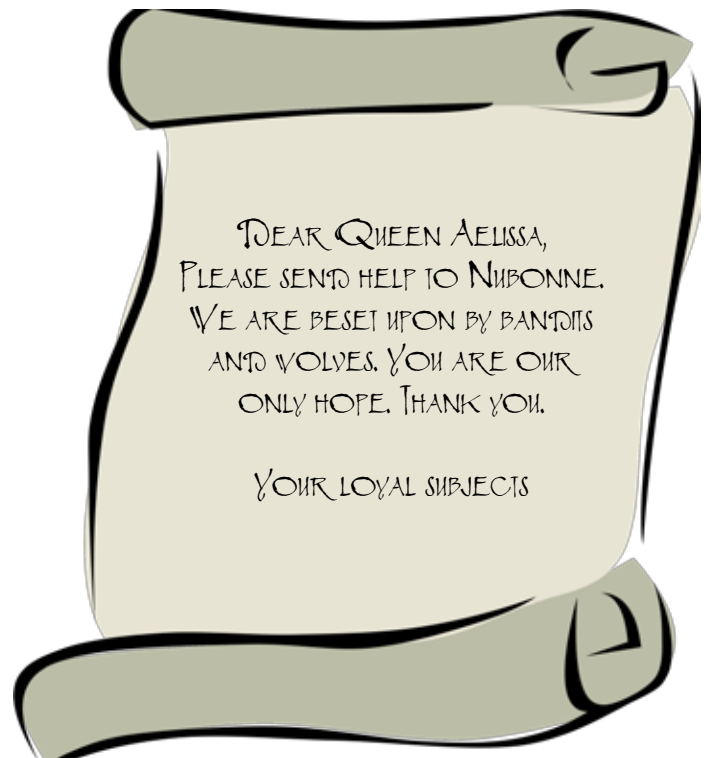 Dear Queen Aelissa,
Please send help to Nubonne.
We are beset upon by bandits
and wolves. You are our
only hope. Thank you.
Your loyal subjects